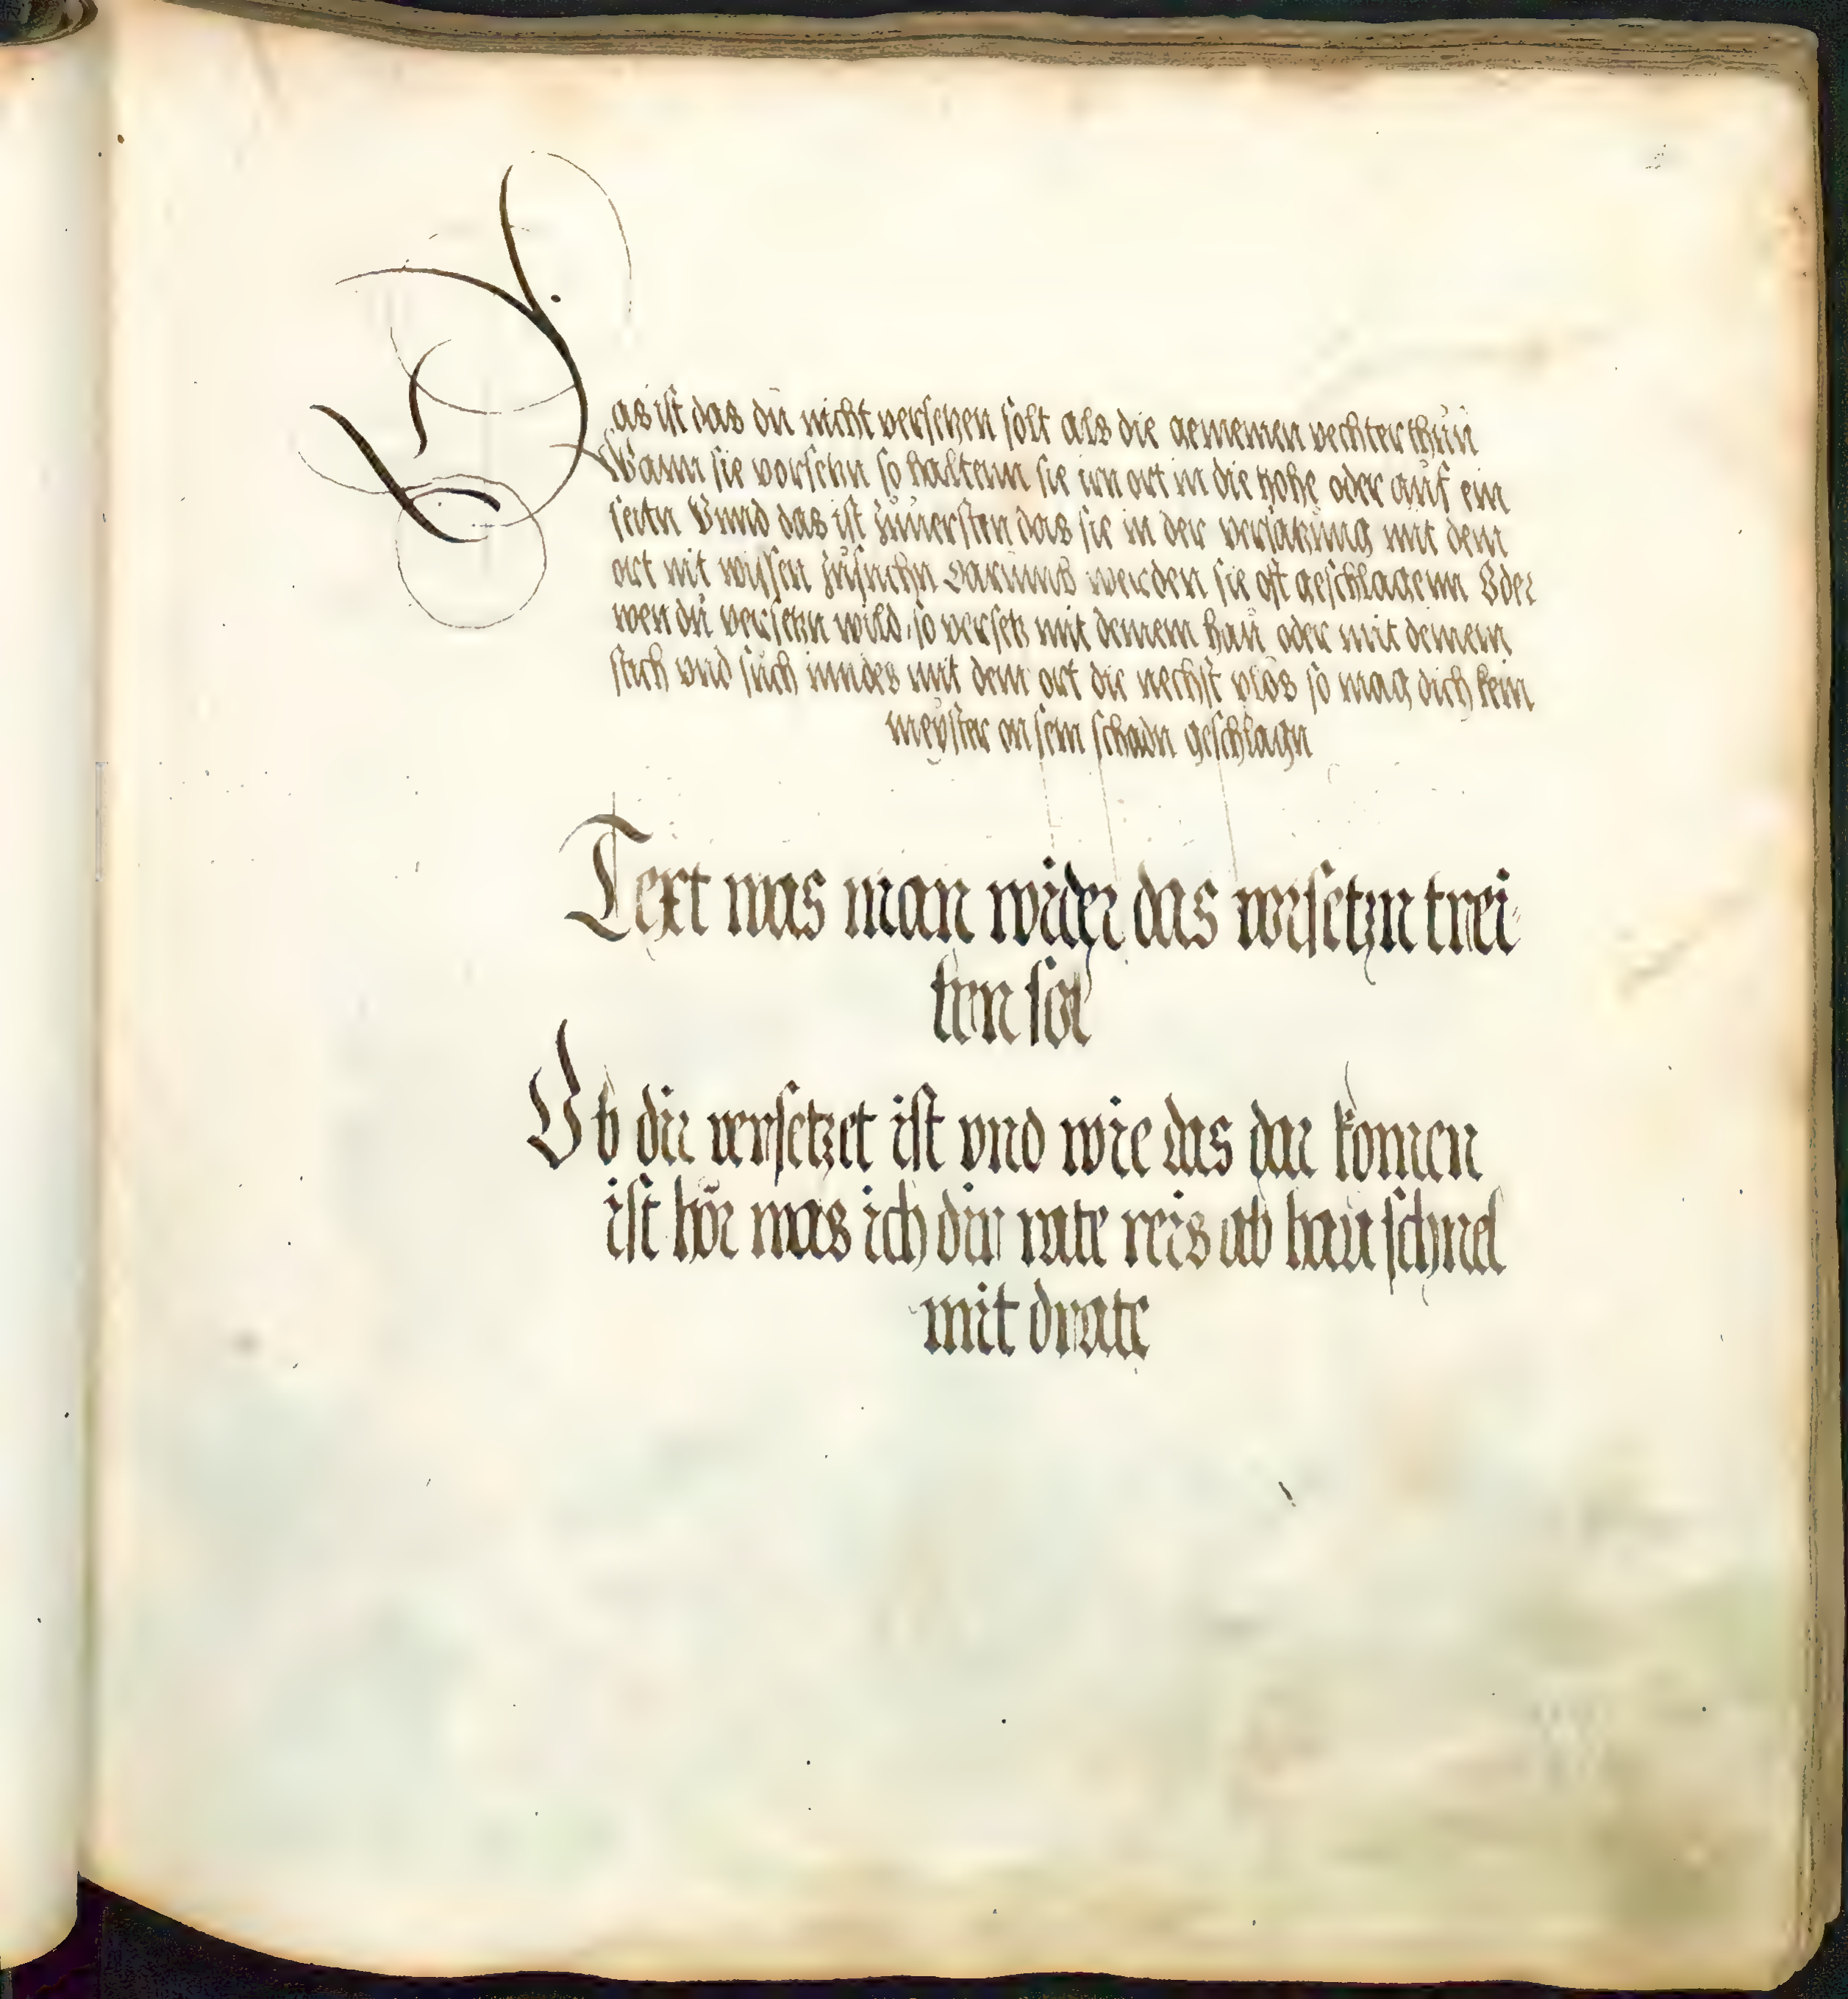 Das ist das dü nicht versetzen solt als die gemeinen vechter thün
Wann sie vorsetzn so haltenn sie irn ort in die hohe oder auf ein
seitn Vnnd das ist züuersten das sie in der versatzüng mit dem
ort nit wissen züsüchn Darümb werden sie oft geschlagenn Oder
wen dü versetzn wild so versetz mit deinem haü oder mit deinem
stich vnd süch inndes mit dem ort die nechst plös so mag dich kein
meÿster on sein schadn geschlagn
Text was man wider das versetzn trei
ben sol
Ob dir versetzet ist vnd wie das dar komen
ist hör was ich dir rate reis ab hau schnel
mit drate